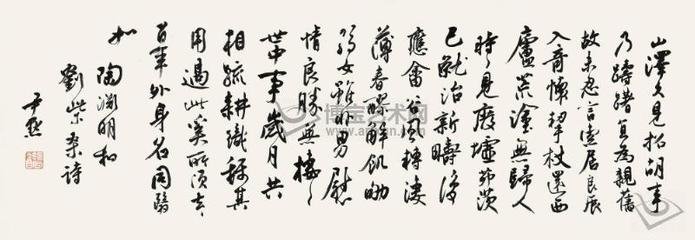 山澤久見招胡事
乃躊躇直為親舊
故未忍言索居良辰
入奇懷挈杖還西
廬荒塗無歸人
時〻見廢墟茅茨
已就治新疇復
應畬谷風轉淒
薄春醪解飢劬
弱女雖非男慰
情良勝無棲〻
世中事歲月共
相疏耕織稱其
用過此奚所須去〻
百年外身名同翳
如 陶淵明和
劉柴桑詩
尹默
博宝艺术网